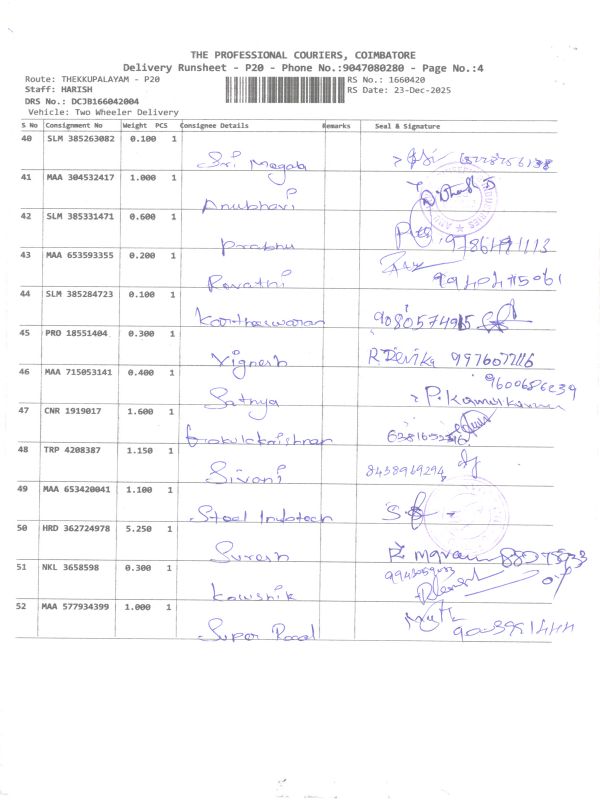 THE PROFESSIONAL COURIERS, COIMBATORE
Delivery Runsheet - P20 - Phone No.:9047080280 - Page No.:4
Route: THEKKUPALAYAM - P20 RS No.: 1660420
Staff: HARISH RS Date: 23-Dec-2025
DRS No.: DCJB166042004
Vehicle: Two Wheeler Delivery
S No Consignment No Weight PCS Consignee Details Remarks Seal & Signature
40 SLM 385263082 0.100 1
Sri Megala
41 MAA 304532417 1.000 1
Anubhavi
42 SLM 385331471 0.600 1
Prabhu
43 MAA 653593355 0.200 1
Revathi
44 SLM 385284723 0.100 1
Kartheeswaran 9080574915
45 PRO 18551404 0.300 1
Vignesh R Devika
46 MAA 715053141 0.400 1
9600686239
Sathya P. Kamalkannan
47 CNR 1919017 1.600 1
Gokulakrishnan
48 TRP 4208387 1.150 1
Sivani 8438969294
49 MAA 653420041 1.100 1
Steel Infotech
50 HRD 362724978 5.250 1
Suresh
51 NKL 3658598 0.300 1
Kowshik
52 MAA 577934399 1.000 1
Super Road